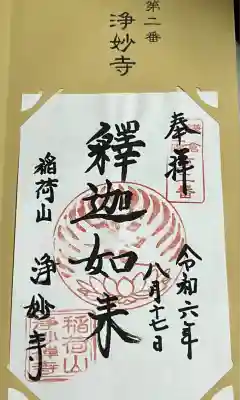 第二番
浄妙寺
奉拝
令和六年
八月十七日
釋迦如来
稲荷山
浄妙寺
稲荷山
浄妙寺